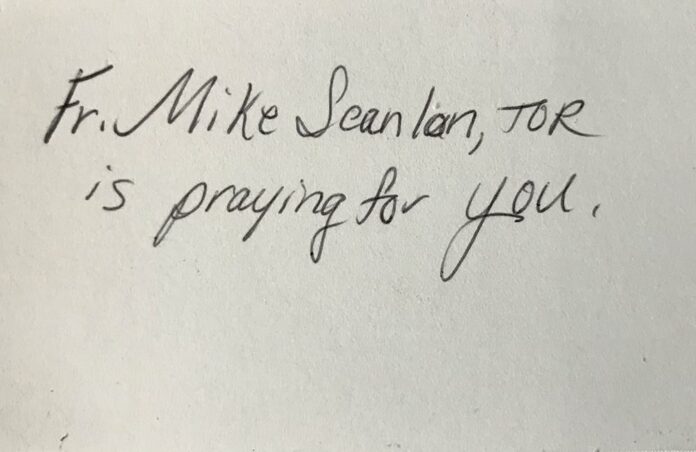 Fr. Mike Scanlan, TOR
is praying for you.